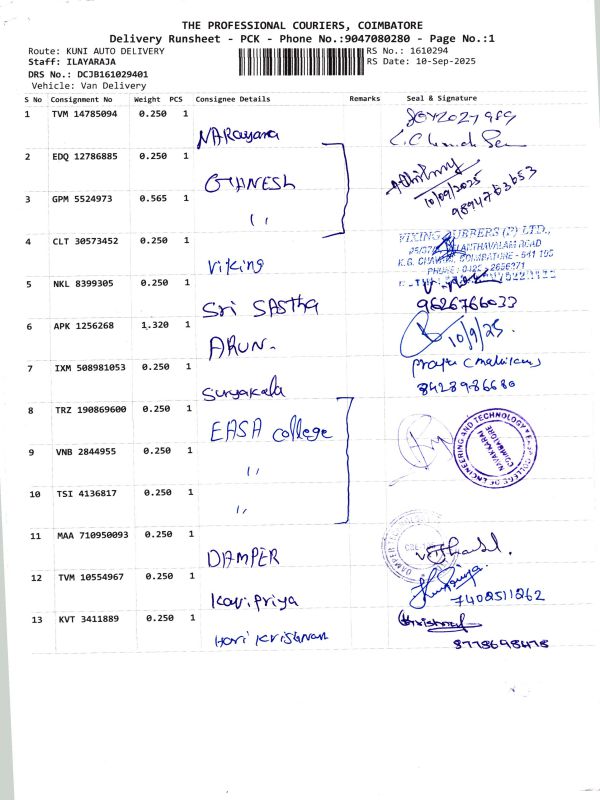 THE PROFESSIONAL COURIERS, COIMBATORE
Delivery Runsheet - PCK - Phone No.:9047080280 - Page No.:1
Route: KUNI AUTO DELIVERY
RS No.: 1610294
Staff: ILAYARAJA
RS Date: 10-Sep-2025
DRS No.: DCJB161029401
Vehicle: Van Delivery
S No Consignment No Weight PCS Consignee Details Remarks Seal & Signature
1 TVM 14785094 0.250 1 NARayana
2 EDQ 12786885 0.250 1 GANESH
10/09/2025
9894763653
3 GPM 5524973 0.565 1 ''
4 CLT 30573452 0.250 1 Viking
VIKING RUBBERS (P) LTD.,
5 NKL 8399305 0.250 1 Sri SASTHA 9626766033
6 APK 1256268 1.320 1 ARUN. 10/9/25.
7 IXM 508981053 0.250 1 Suryakala
8428986680
8 TRZ 190869600 0.250 1 EASA college
EASA COLLEGE OF ENGINEERING AND TECHNOLOGY
NAVAKKARAI
COIMBATORE
9 VNB 2844955 0.250 1 ''
10 TSI 4136817 0.250 1 ''
11 MAA 710950093 0.250 1 DAMPER
12 TVM 10554967 0.250 1 Kavipriya
13 KVT 3411889 0.250 1 Hari Krishnan
8778698478